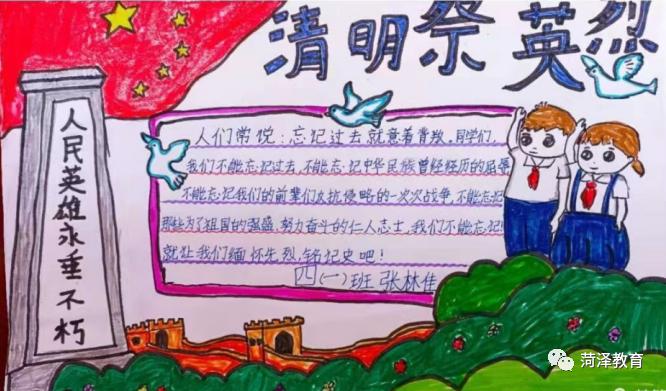 清明祭英烈
人民英雄永垂不朽
人们常说:忘记过去就意着背叛,同学们,
我们不能忘记过去,不能忘记中华民族曾经经历的屈辱
不能忘记我们的前辈们抗侵略的一次次战争,不能忘记
那些为了祖国的强盛,努力奋斗的仁人志士,我们不能忘记!
就让我们缅怀先烈,铭记史吧!
四(一)班 张林佳
菏泽教育